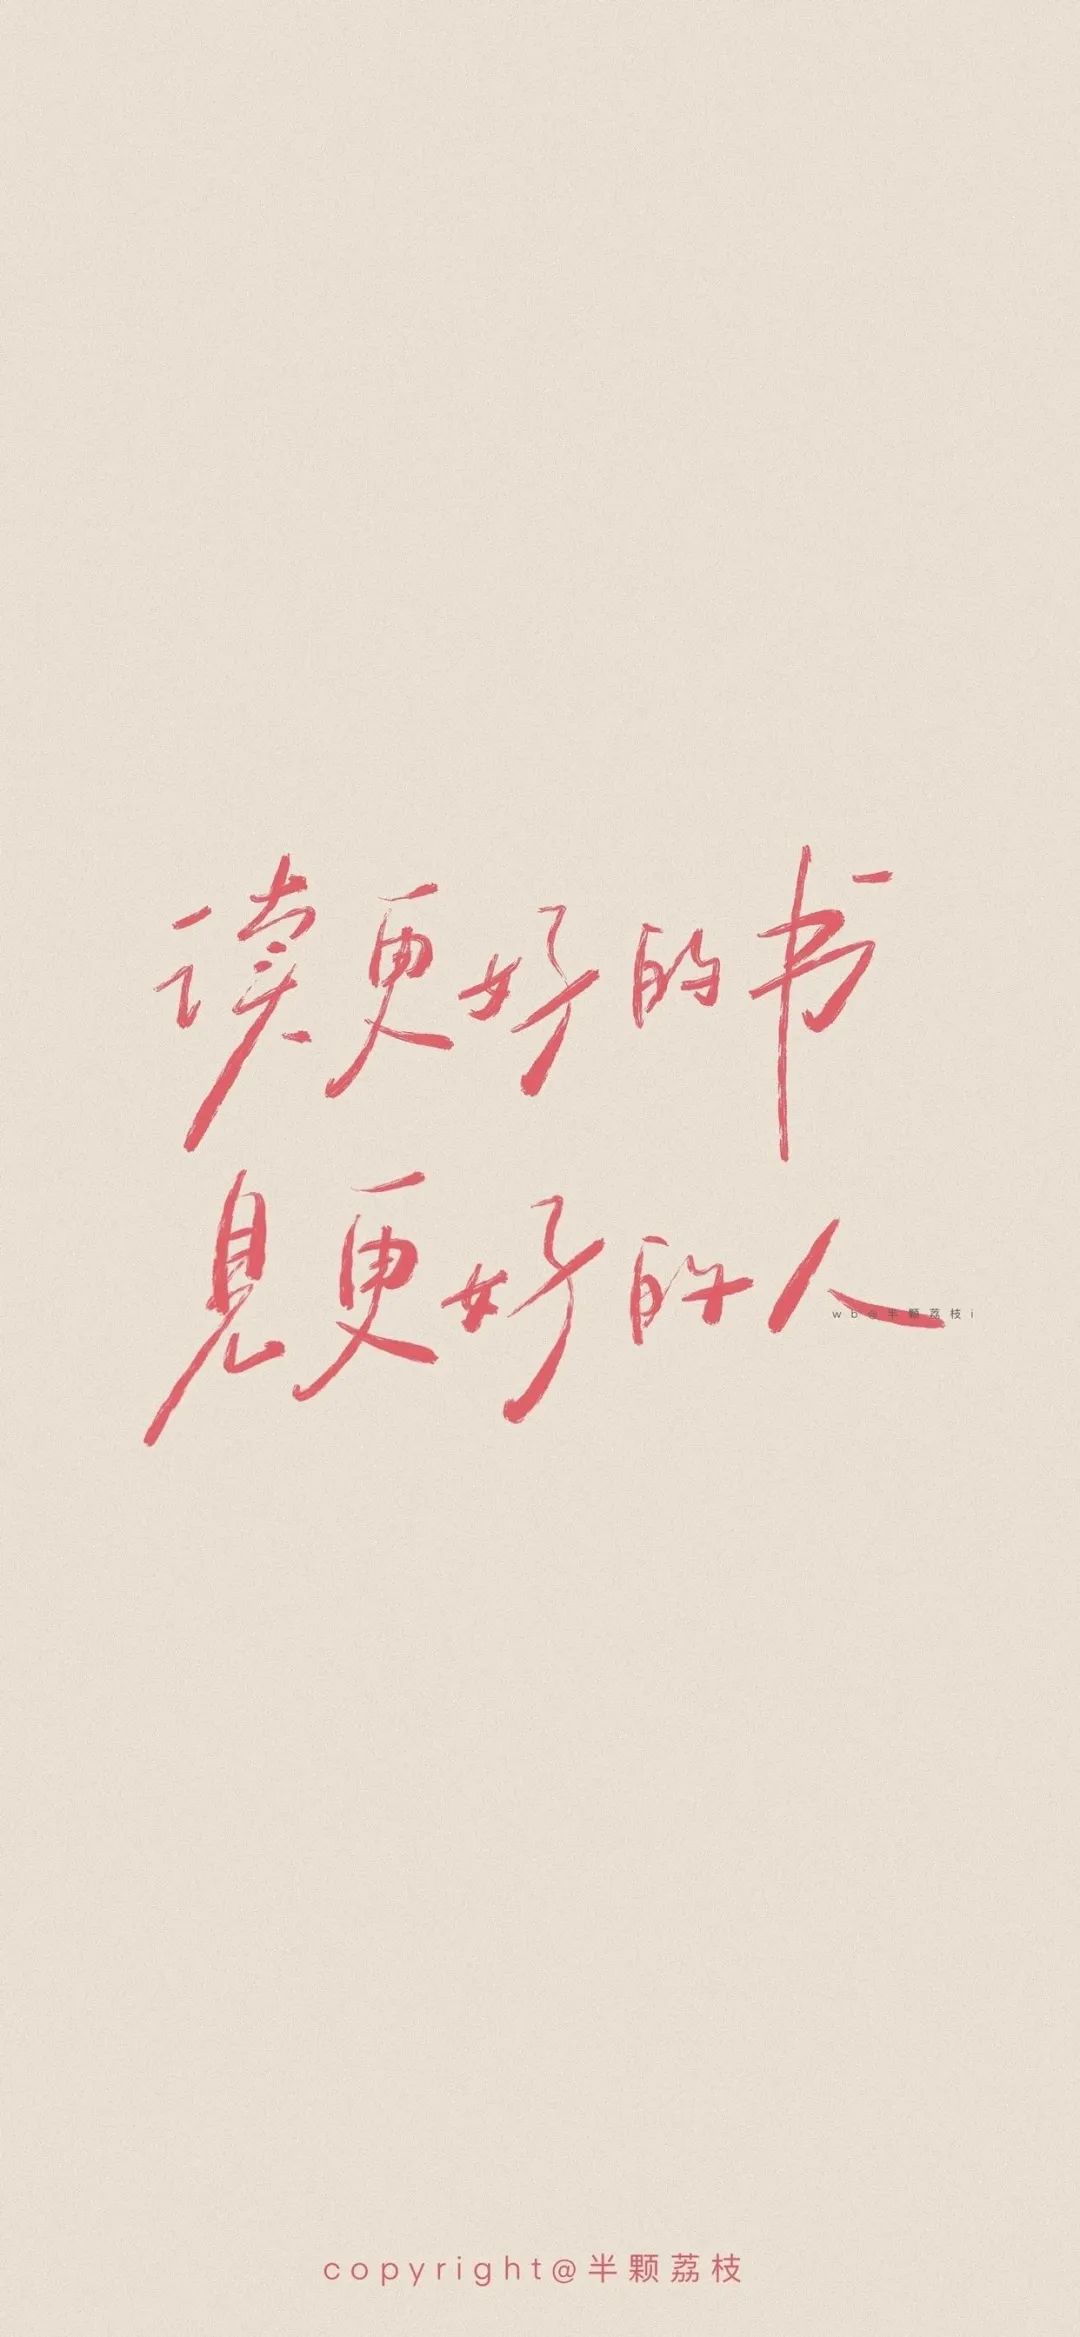 读更好的书
見更好的人
wb@半颗荔枝i
copyright@半颗荔枝